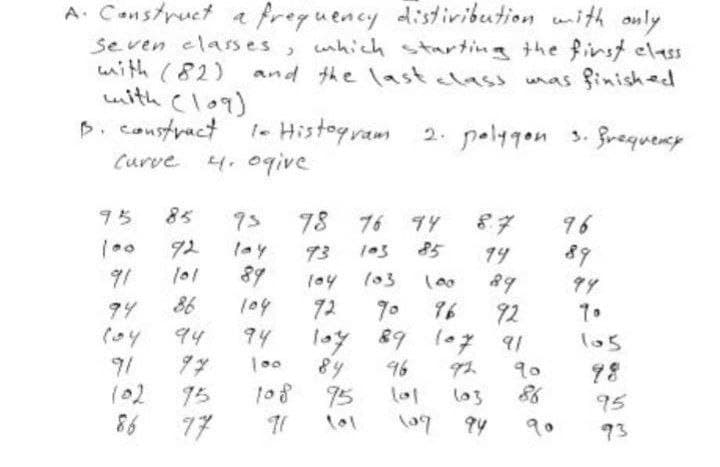 A. Construct a frequency distiribution with only
seven classes, which starting the first class
with (82) and the last class was finished
with (109)
B. constract 1- Histogram 2. polygon 3. frequency
curve 4. ogive
95 85 95 98 96 94 87 96
100 92 104 93 103 85 94 89
91 101 89 104 103 100 89 94
94 86 104 92 90 96 92 90
104 94 94 107 89 107 91 105
91 97 100 84 96 92 90 98
102 95 108 95 101 103 86 95
86 97 91 101 109 94 90 93